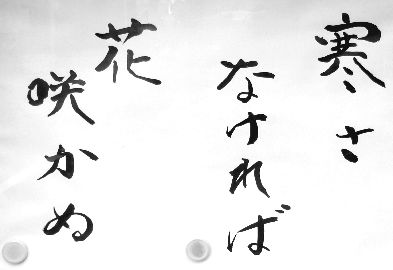 寒さ
なければ
花
咲かぬ